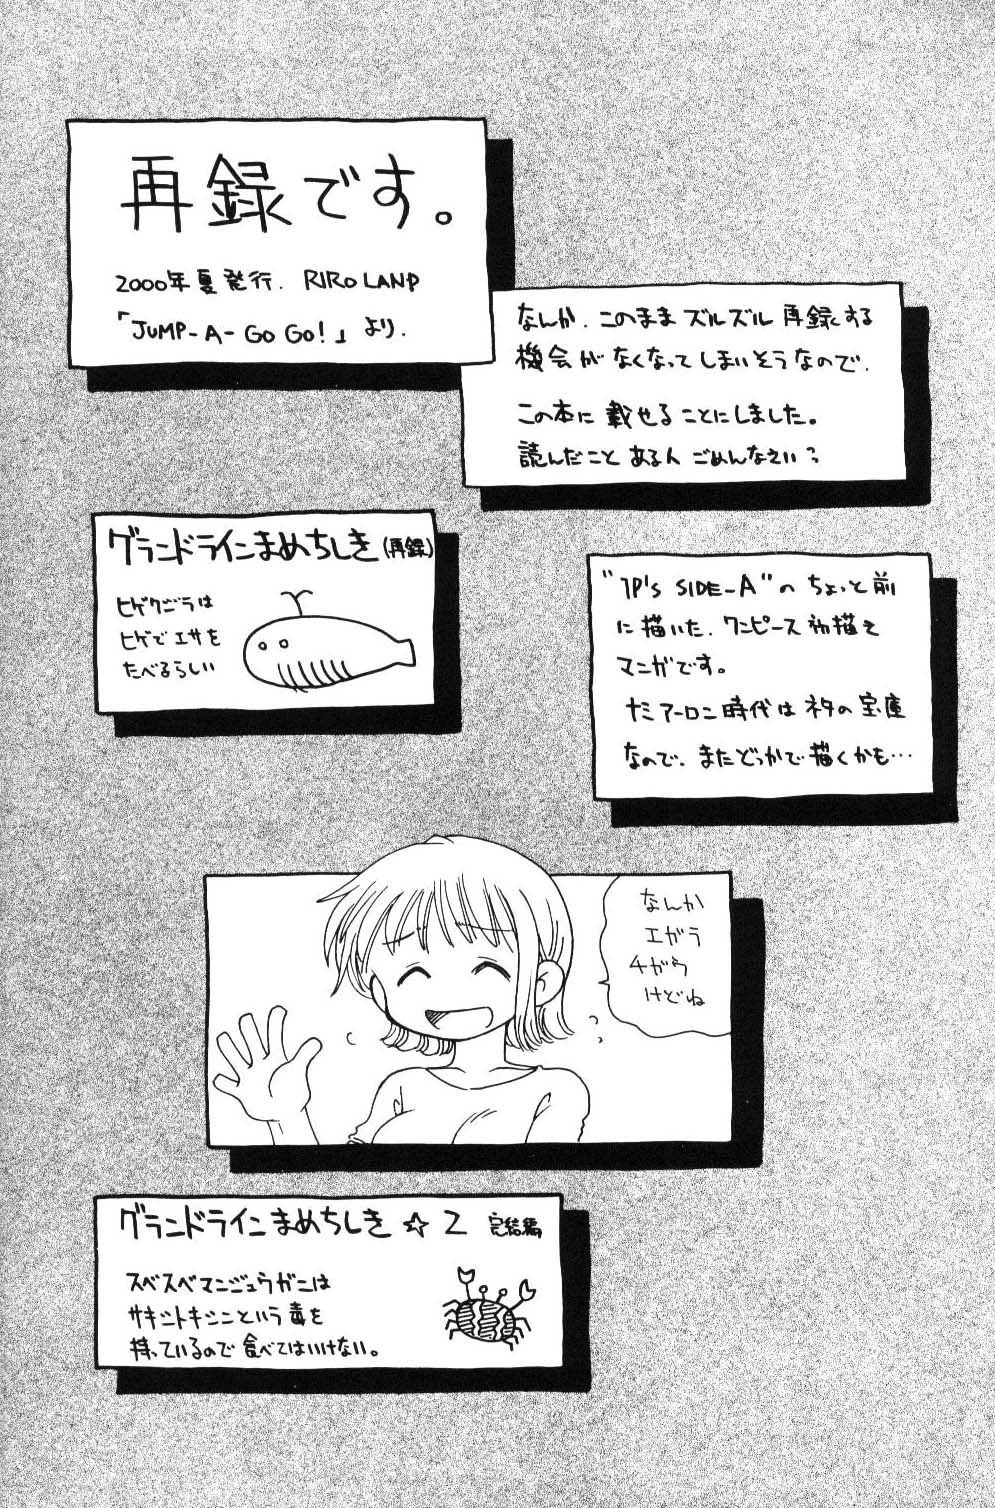 再録です。
2000年夏発行. RIRO LAND
「JUMP-A-GO GO!」より.
なんか、このままズルズル再録する
機会がなくなってしまいそうなので.
この本に載せることにしました。
読んだことある人ごめんなさい
グランドラインまめちしき(再録)
ヒゲクジラは
ヒゲでエサを
たべるらしい
"1P's SIDE-A"のちょっと前
に描いた、ワンピース初描き
マンガです。
ナミアーロン時代はネタの宝庫
なので、またどっかで描くかも…
なんか
エガラ
チガウ
けどね
グランドラインまめちしき☆2 完結編
スベスベマンジュウガニは
サキシトキシンという毒を
持っているので食べてはいけない。